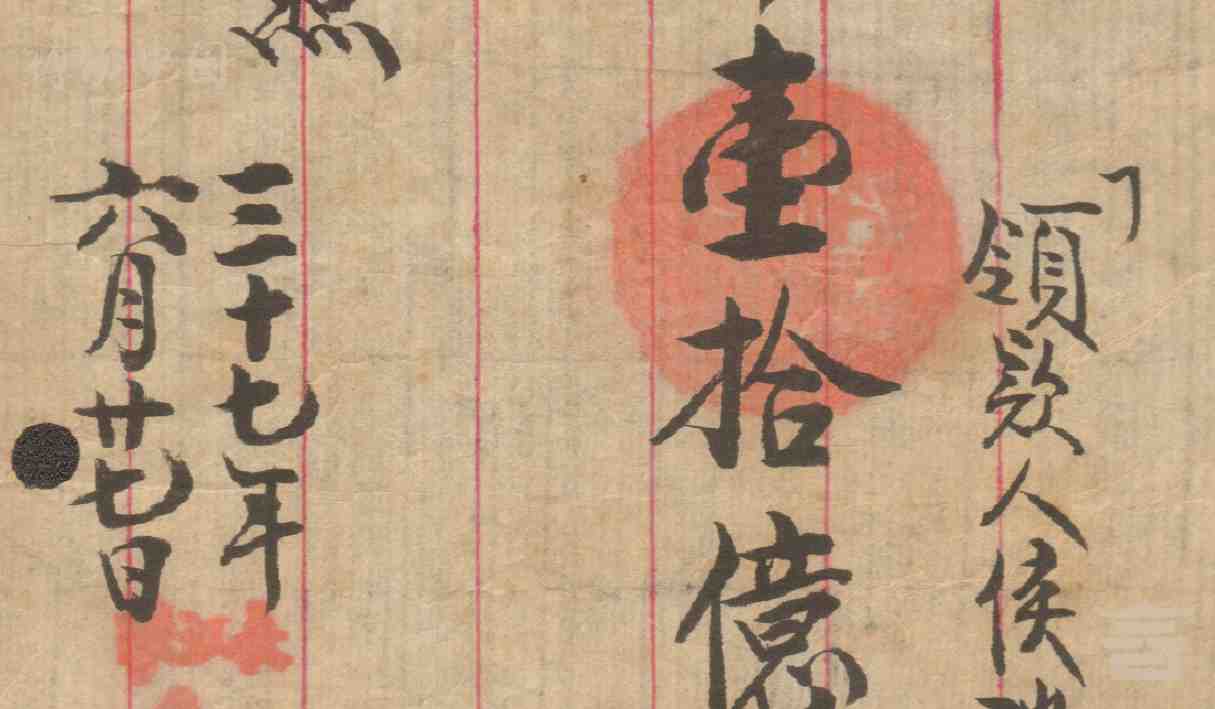 領款人侯
壹拾億
照
三十七年
六月廿七日